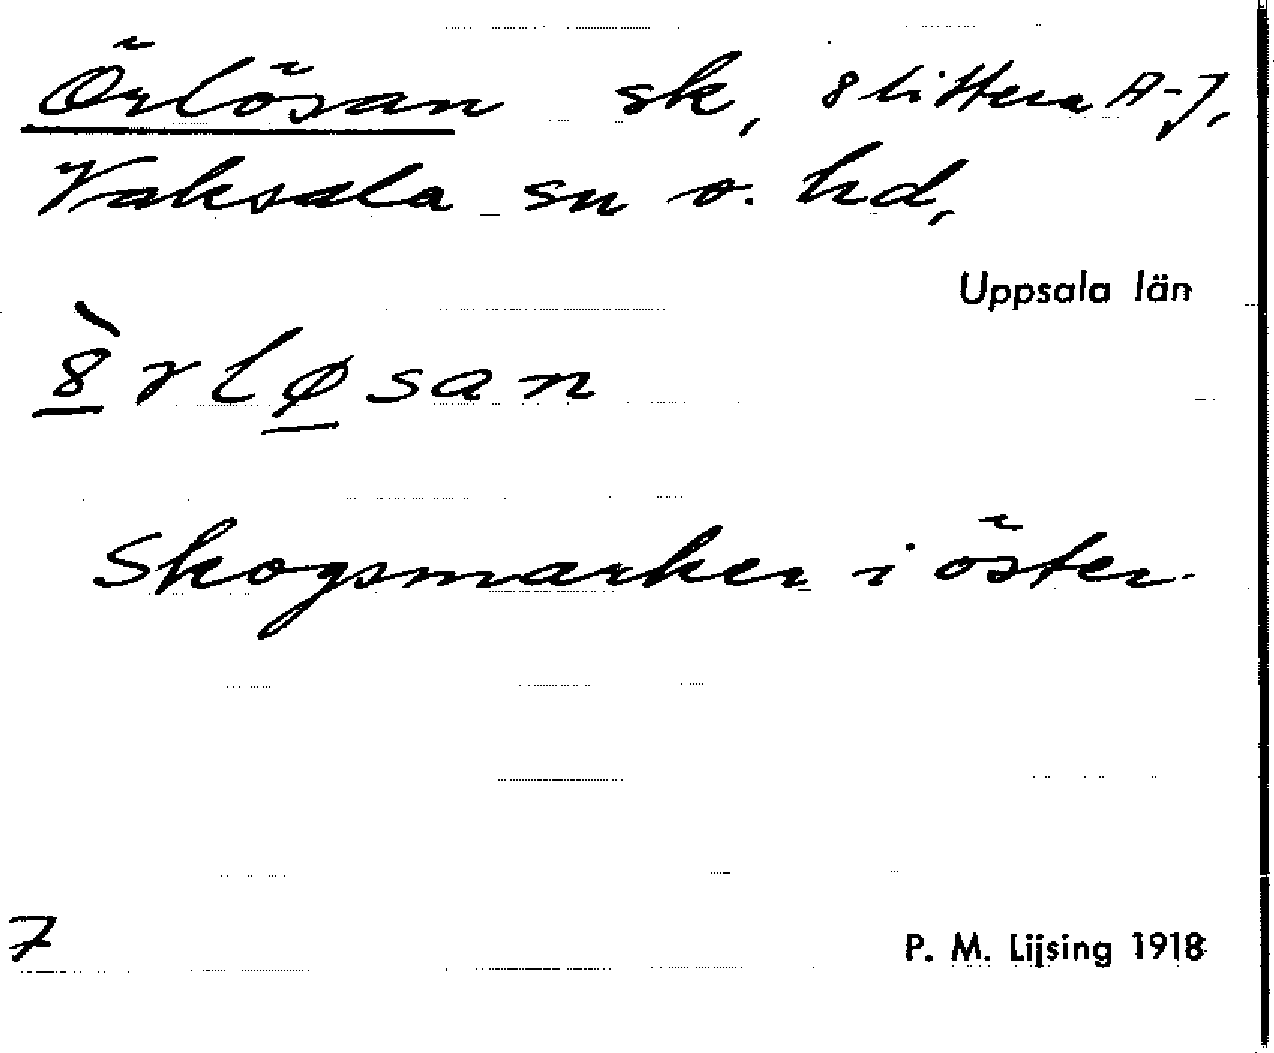 Örlösan sk, 8 littera A-J,
Vaksala sn o. hd,
Uppsala län
8̀rløsan
Skogsmarker i öster
7
P. M. Lijsing 1918